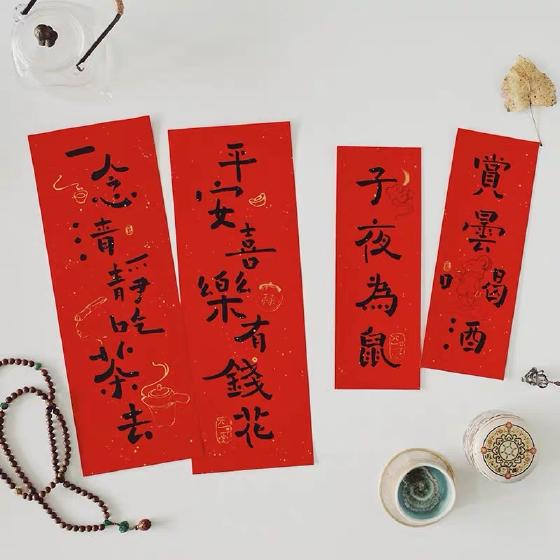 一念清靜吃茶去
平安喜樂有錢花
子夜為鼠
賞曇喝酒